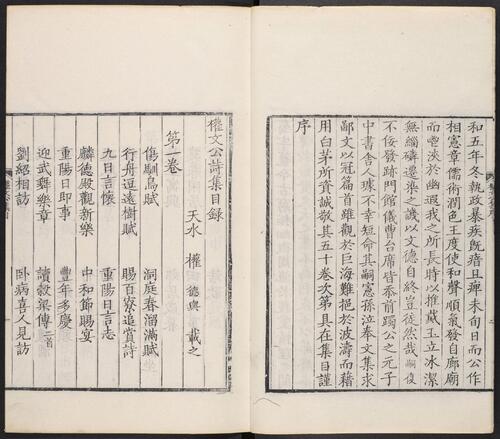 和五年冬執政暴疾既瘖且癉未旬日而公作
相憲章儒術潤色王度使和聲順氣發自廊廟
而暢浹於幽遐我之所長時以推蔵玉立冰潔
無緇磷遷染之譏以文德自終豈徒然哉嗣復
不佞發跡門館儀曹台席皆忝前躅公之元子
中書舍人璩不幸短命其嗣憲孫泣奉文集求
鄙文以冠篇首雖觀於巨海難挹於波濤而藉
用白茅所資誠敬其五十卷次第具在集目謹
序
權文公詩集目録
天水 權 德輿 載之
第一卷
傷馴鳥賦 洞庭春溜滿賦
行舟逗遠樹賦 賜百寮追賞詩
九日言懷 重陽日言志
麟德殿觀新樂 中和節賜宴
重陽日即事 豐年多慶
迎武舞樂章 讀穀梁傳二首
劉紹相訪 卧病喜人見訪